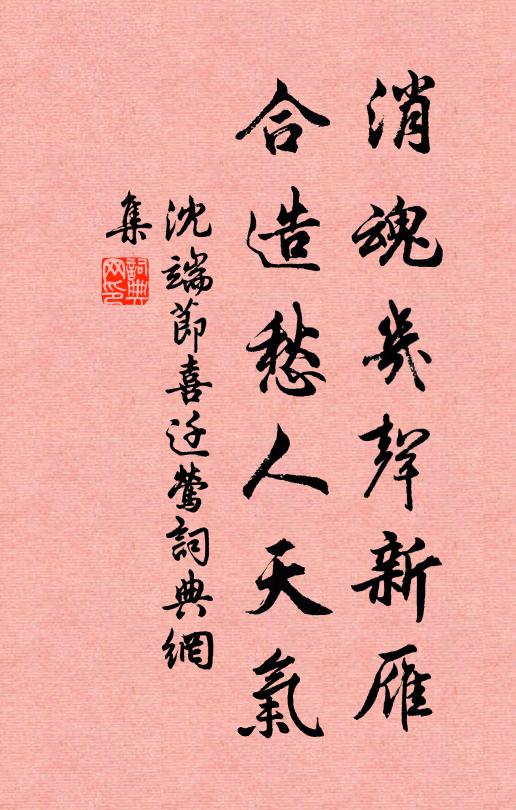 消魂幾聲新雁
合造愁人天氣
沈端節喜迁鶯詞典網
集
詞典
网印